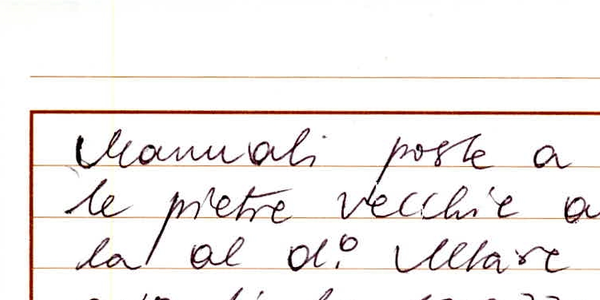 Manuali poste a
le pietre vecchie a
la al d.º Altare